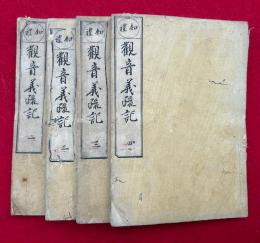 知禮
觀音義疏記 四
知禮
觀音義疏記 三
知禮
觀音義疏記 二
知禮
觀音義疏記